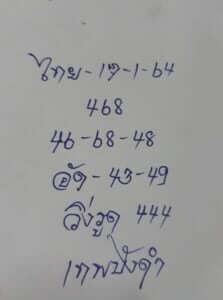 ไทย-17-1-64
468
46-68-48
อัด-43-49
วิ่งรูด 444
เทพบังดำ